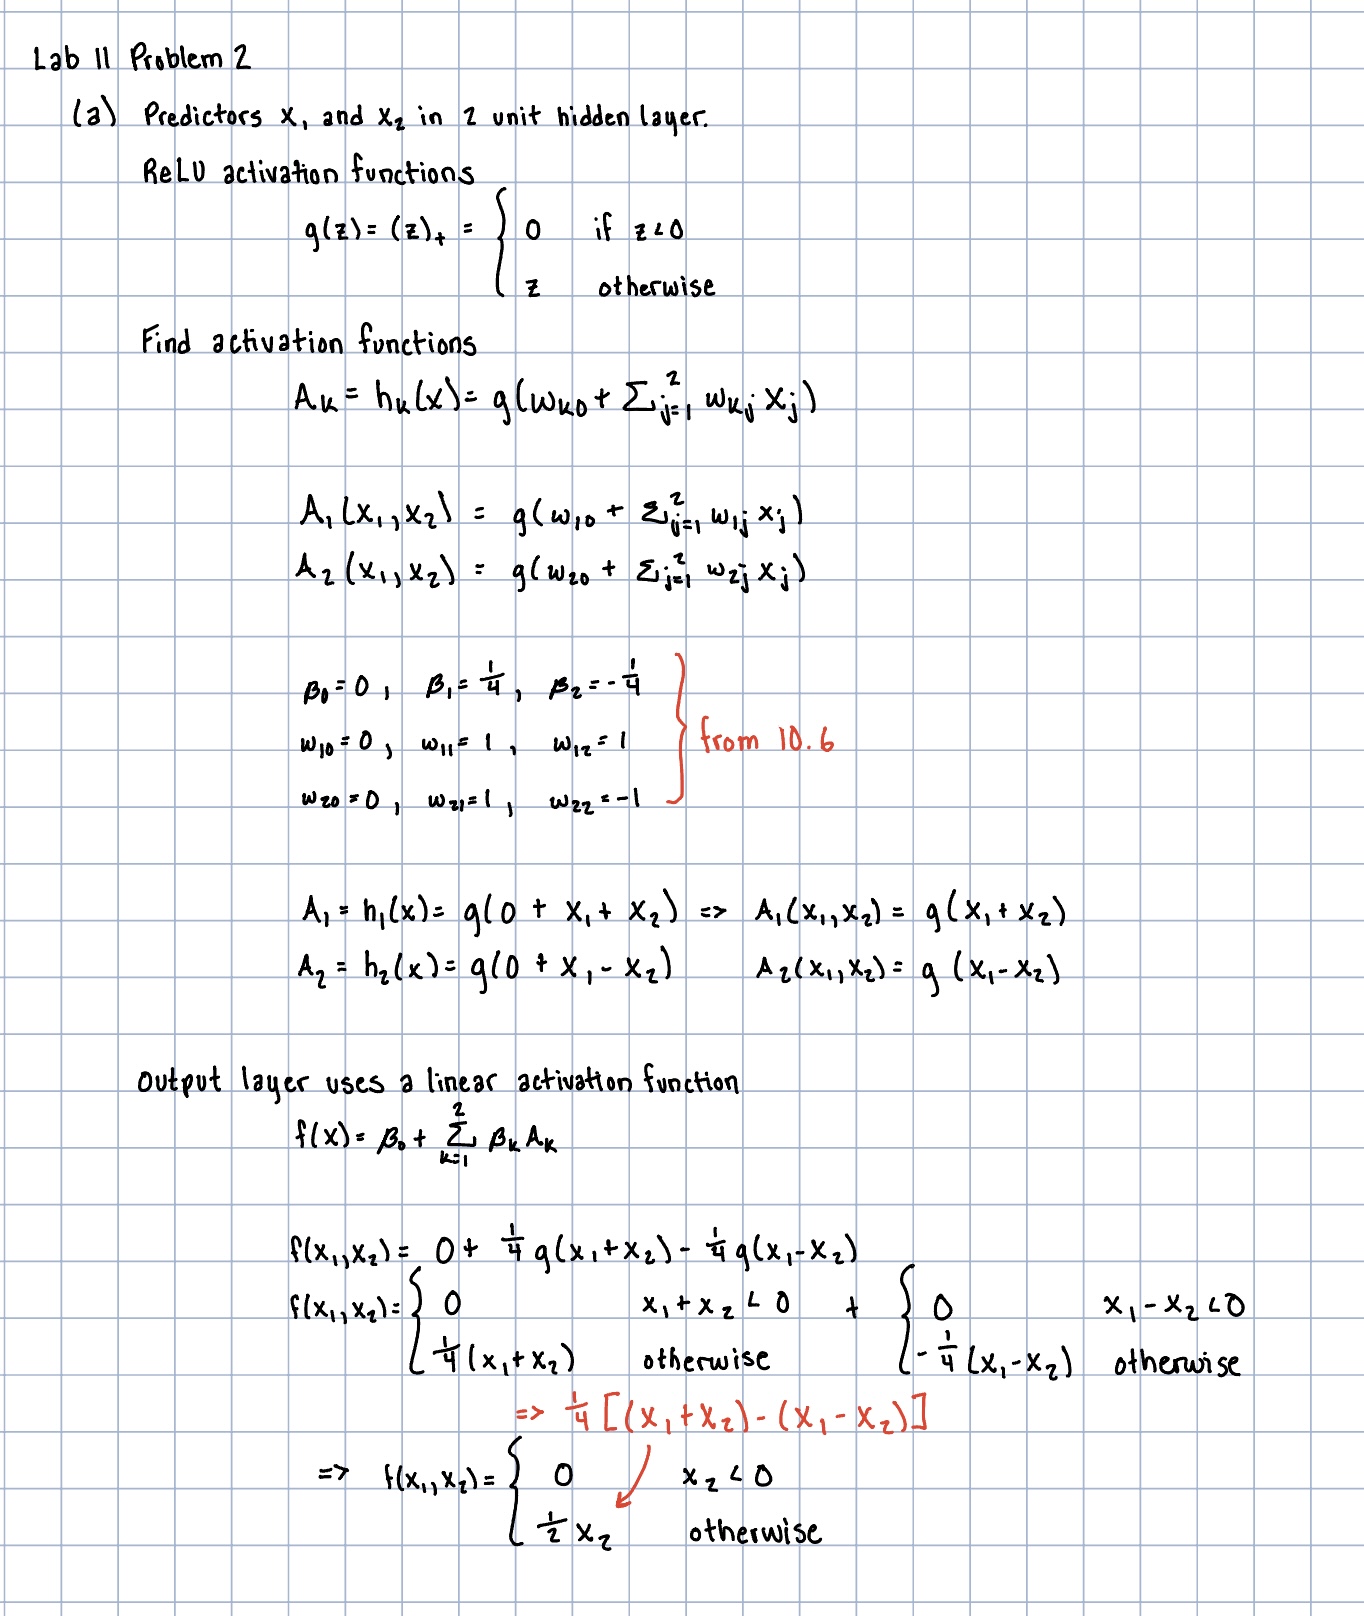 Lab 11 Problem 2
(a) Predictors x₁ and x₂ in 2 unit hidden layer.
ReLU activation functions
g(z) = (z)₊ = { 0 if z < 0
z otherwise
Find activation functions
Aₖ = hₖ(x) = g(wₖ₀ + Σⱼ₌₁² wₖⱼ xⱼ)
A₁(x₁, x₂) = g(w₁₀ + Σⱼ₌₁² w₁ⱼ xⱼ)
A₂(x₁, x₂) = g(w₂₀ + Σⱼ₌₁² w₂ⱼ xⱼ)
β₀ = 0, β₁ = 1/4, β₂ = -1/4
w₁₀ = 0, w₁₁ = 1, w₁₂ = 1 } from 10.6
w₂₀ = 0, w₂₁ = 1, w₂₂ = -1
A₁ = h₁(x) = g(0 + x₁ + x₂) => A₁(x₁, x₂) = g(x₁ + x₂)
A₂ = h₂(x) = g(0 + x₁ - x₂) A₂(x₁, x₂) = g(x₁ - x₂)
Output layer uses a linear activation function
f(x) = β₀ + Σₖ₌₁² βₖ Aₖ
f(x₁, x₂) = 0 + 1/4 g(x₁ + x₂) - 1/4 g(x₁ - x₂)
f(x₁, x₂) = { 0 x₁ + x₂ < 0 + { 0 x₁ - x₂ < 0
1/4 (x₁ + x₂) otherwise -1/4 (x₁ - x₂) otherwise
=> 1/4 [(x₁ + x₂) - (x₁ - x₂)]
=> f(x₁, x₂) = { 0 x₂ < 0
1/2 x₂ otherwise